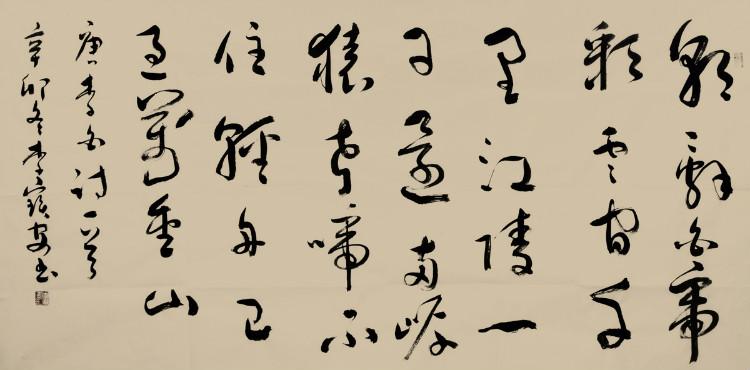 朝辭白帝
彩雲間千
里江陵一
日還兩岸
猿聲啼不
住輕舟已
過萬重山
唐李白詩一首
辛卯冬李書